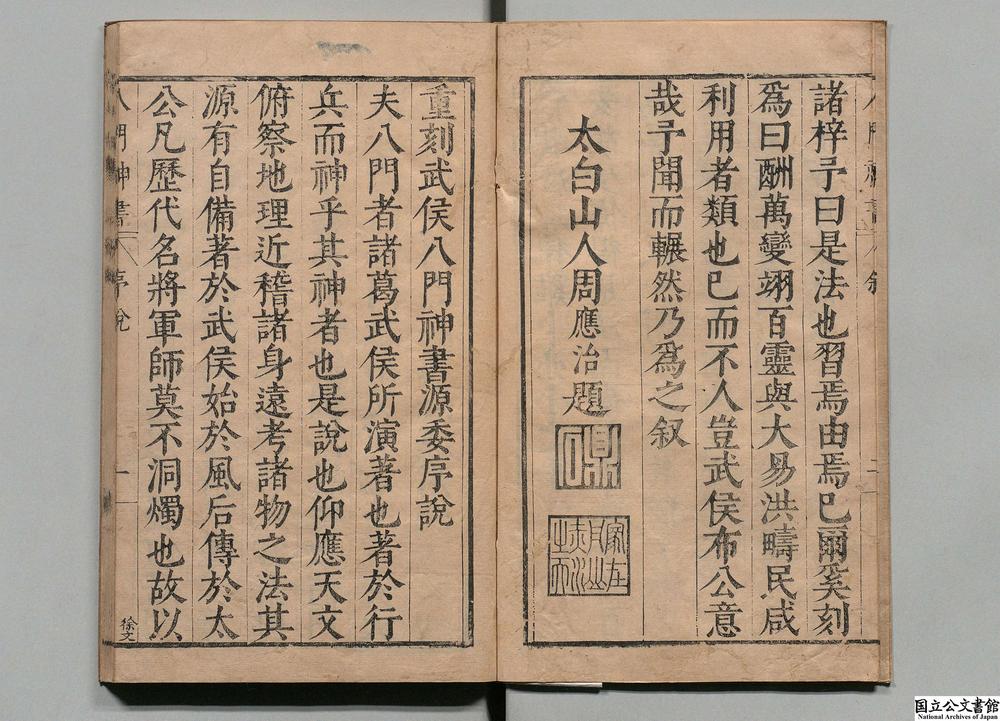 諸梓予曰是法也習焉由焉已爾奚刻
爲曰酬萬變翊百靈與大易洪疇民咸
利用者類也已而不人豈武侯布公意
哉予聞而輾然乃爲之叙
太白山人周應治題
重刻武侯八門神書源委序說
夫八門者諸葛武侯所演著也著於行
兵而神乎其神者也是說也仰應天文
俯察地理近稽諸身遠考諸物之法其
源有自備著於武侯始於風后傳於太
公凡歷代名將軍師莫不洞燭也故以
徐文
八門神書
序說
一
国立公文書館
National Archives of Japan